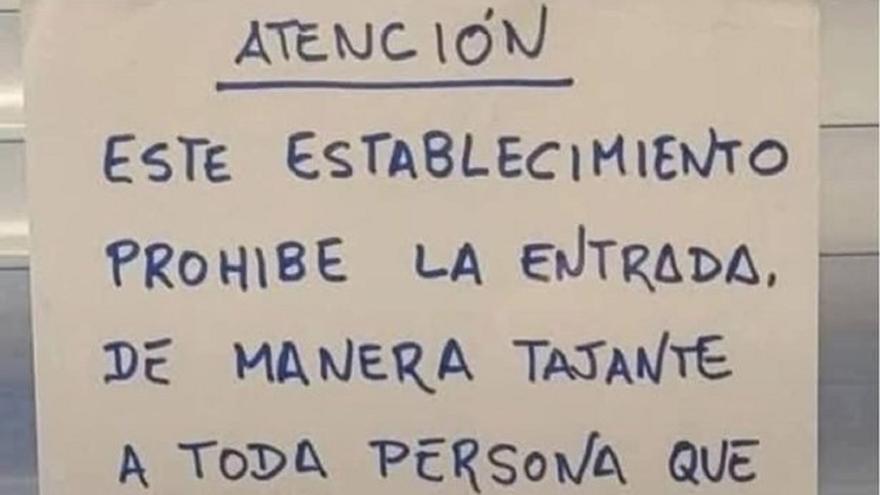 ATENCIÓN
ESTE ESTABLECIMIENTO
PROHIBE LA ENTRADA,
DE MANERA TAJANTE
A TODA PERSONA QUE